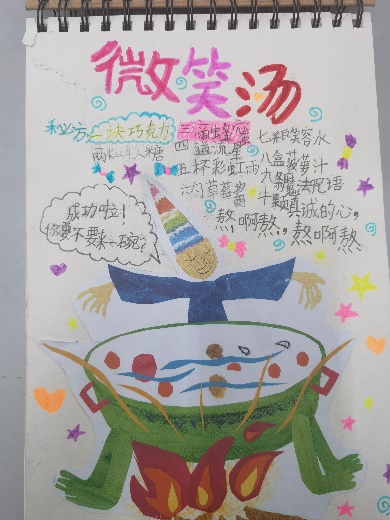 微笑汤
秘方：一块巧克力
两粒乳糖
三滴蜂蜜
四道流星
五杯彩虹雨
六勺草莓酱
七瓶笑容水
八盒菠萝汁
九条魔法咒语
十颗真诚的心，
熬啊熬，熬啊熬
成功啦！
你要不要来一碗？